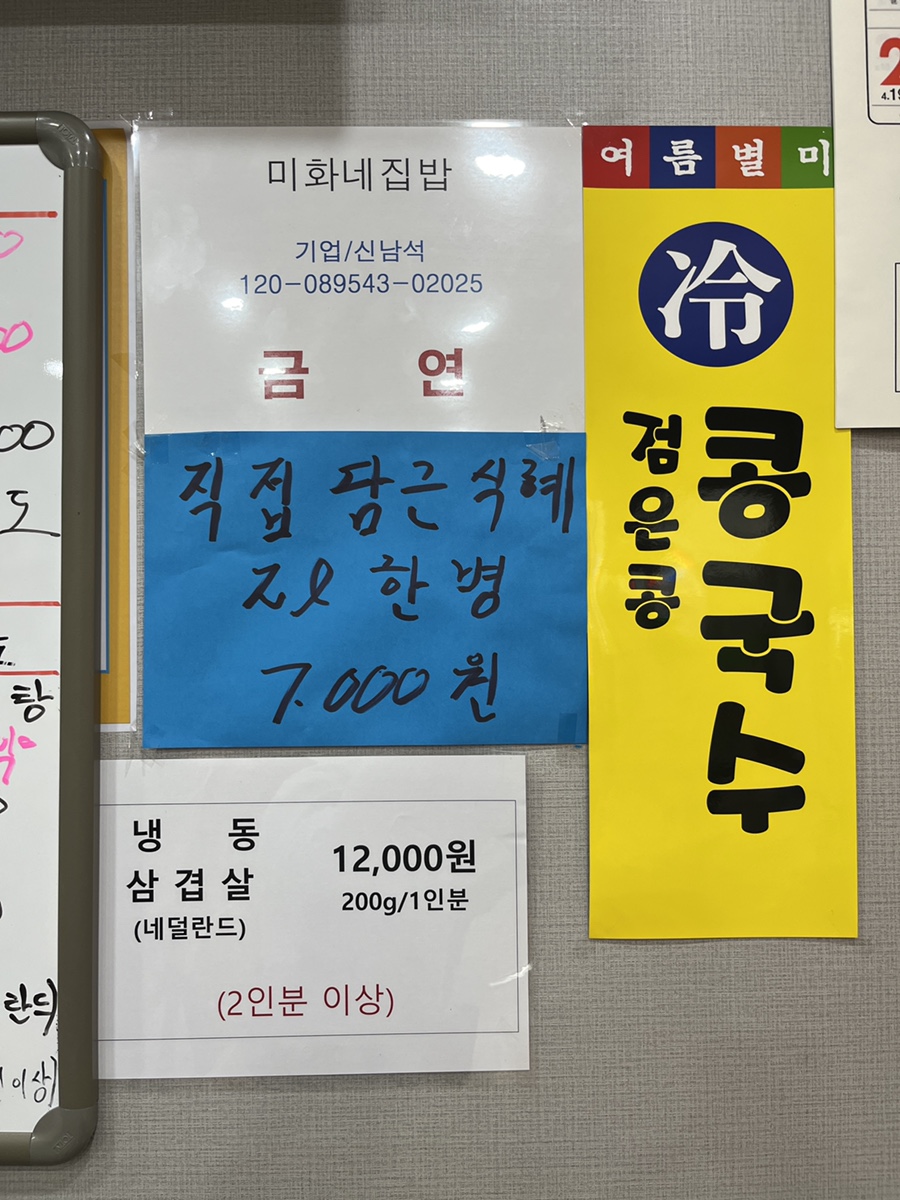 미화네집밥
기업/신남석
120-089543-02025
금 연
직접 담근 식혜
2ℓ 한병
7.000원
냉 동
삼겹살
(네덜란드)
12,000원
200g/1인분
(2인분 이상)
여름별미
冷
검은콩
콩국수
00
도
탕
란드)
이상)